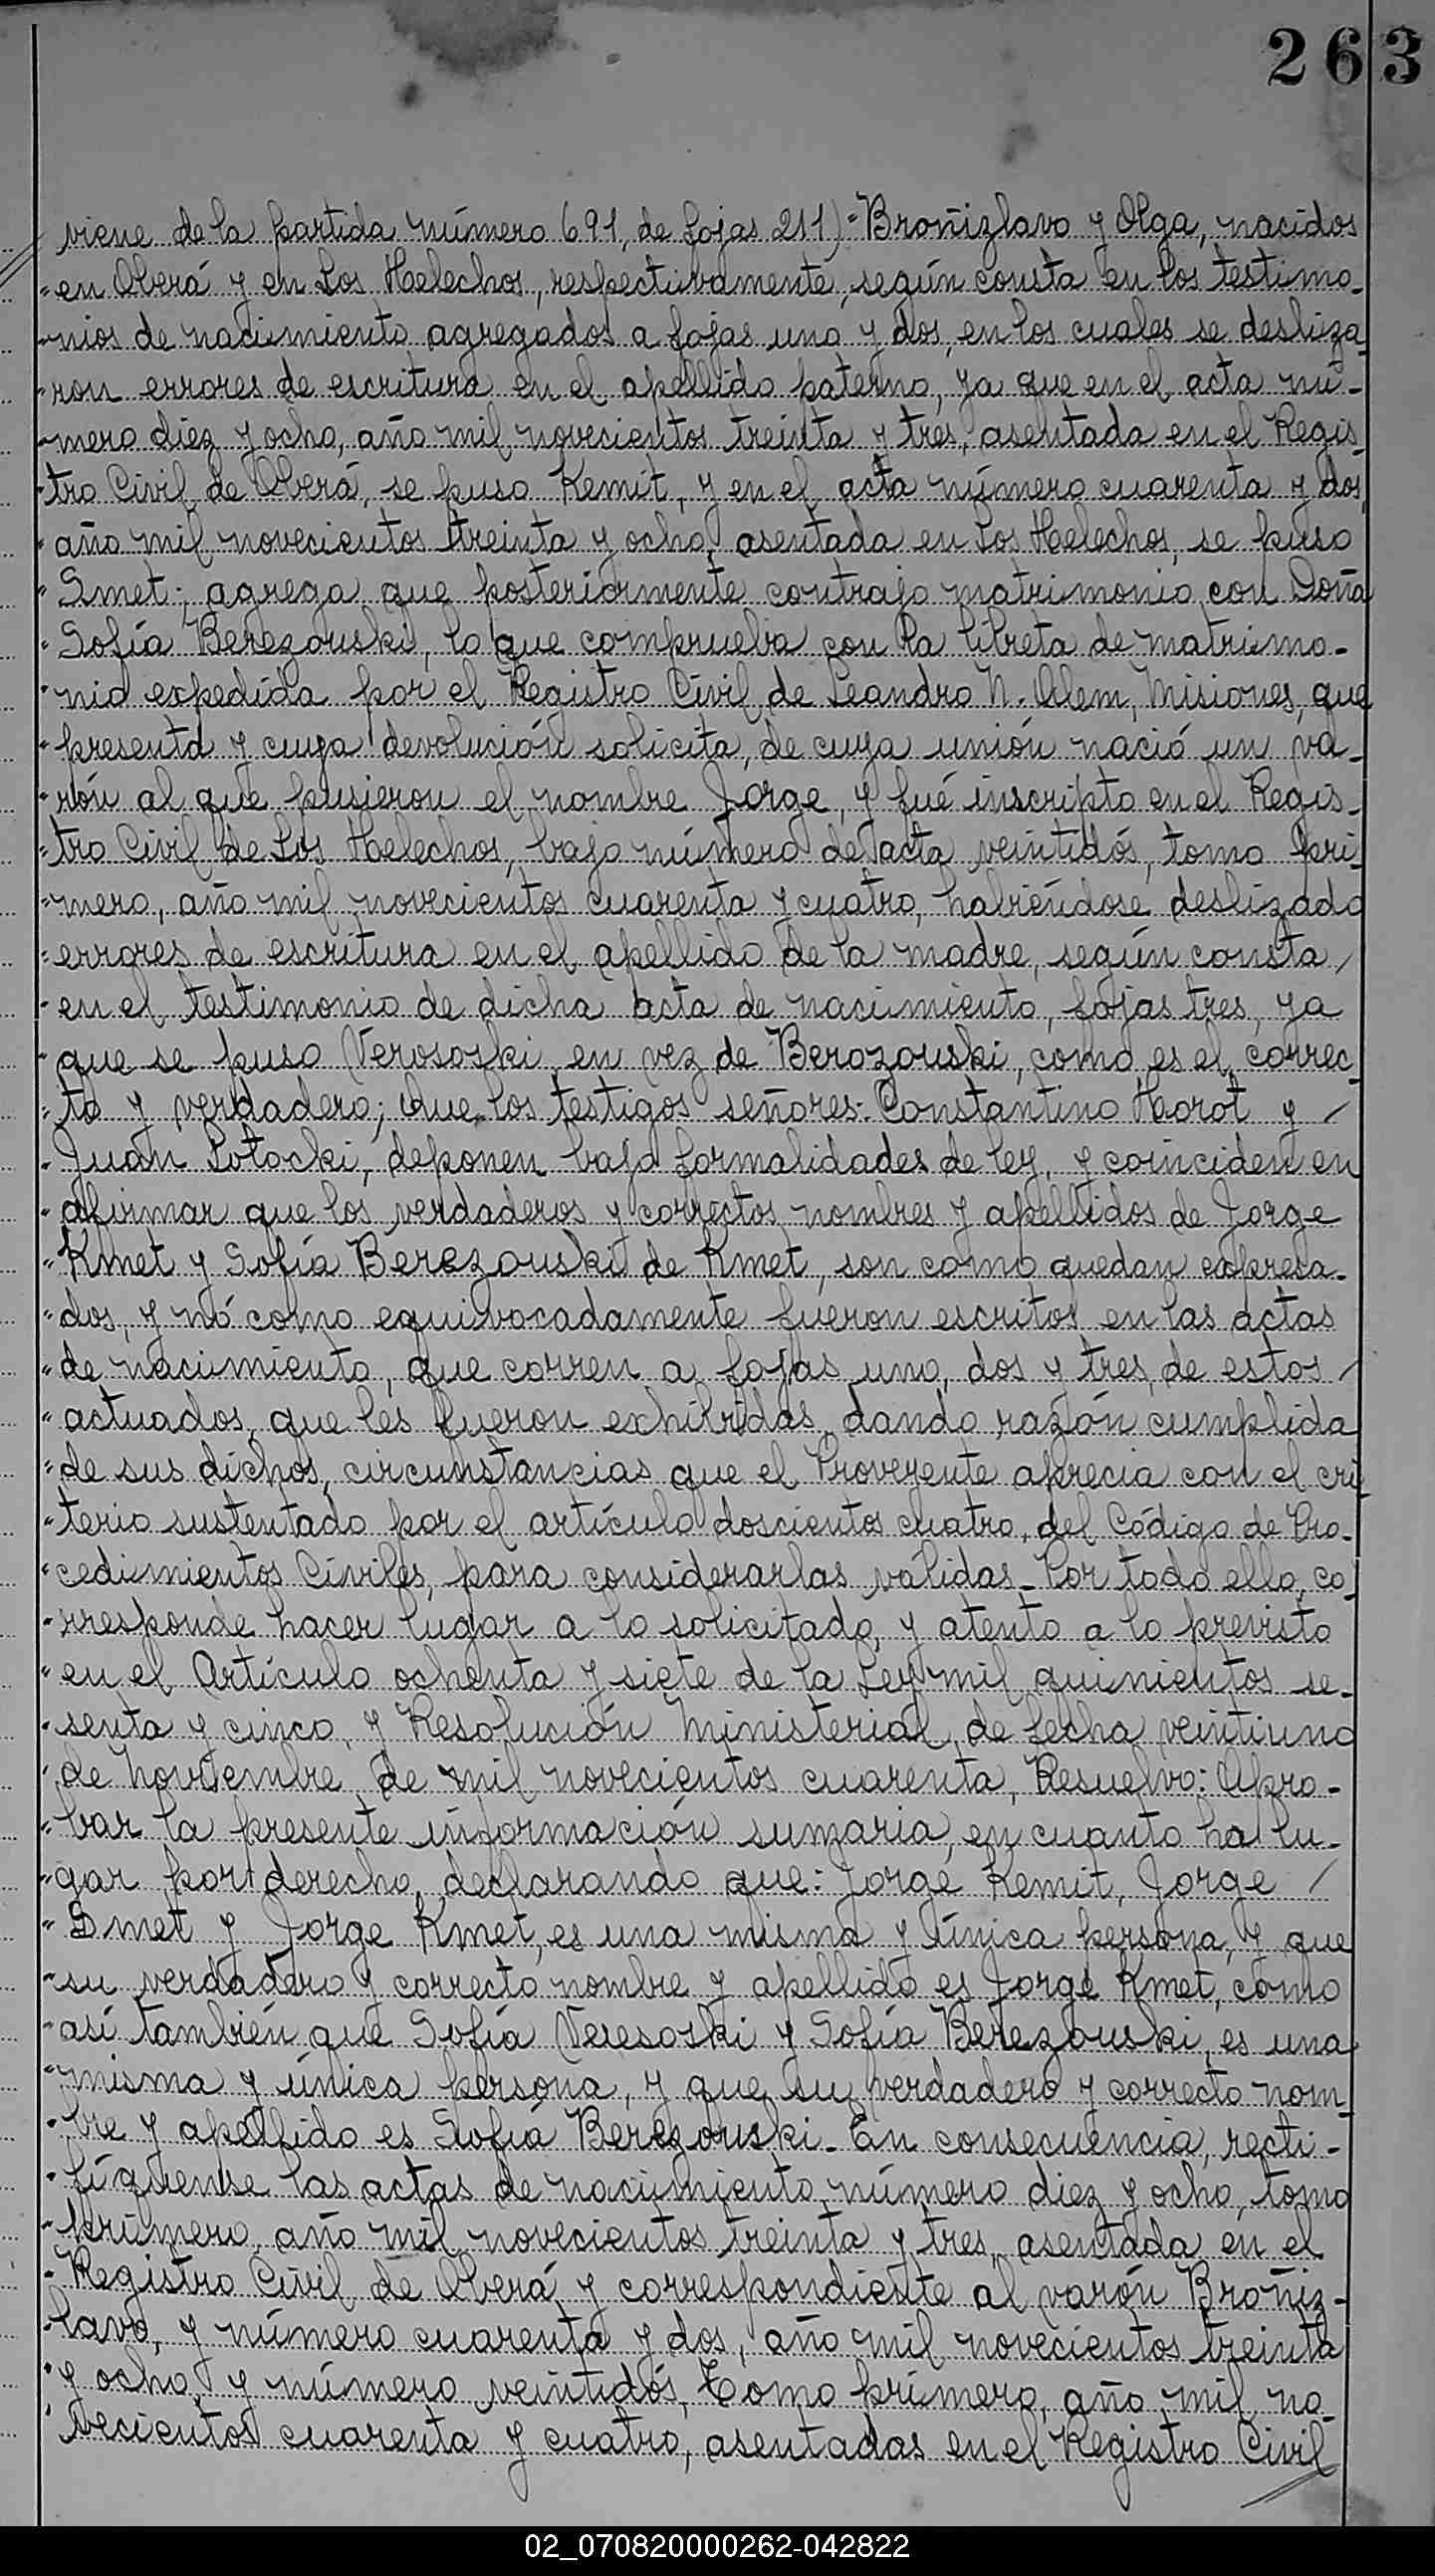 263
viene de la partida número 691, de fojas 211) = Broñizlavo y Olga, nacidos
"en Oberá y en Los Helechos, respectivamente, según consta en los testimo-
"nios de nacimiento agregados a fojas uno y dos, en los cuales se desliza-
"ron errores de escritura en el apellido paterno, ya que en el acta nú-
"mero diez y ocho, año mil novecientos treinta y tres, asentada en el Regis-
"tro Civil de Oberá, se puso Kemit, y en el acta número cuarenta y dos,
"año mil novecientos treinta y ocho, asentada en Los Helechos, se puso
"Smet; agrega que posteriormente contrajo matrimonio con Doña
"Sofía Berezouski, lo que comprueba con la libreta de matrimo-
"nio expedida por el Registro Civil de Leandro N. Alem, Misiones, que
"presenta y cuya devolución solicita, de cuya unión nació un va-
"rón al que pusieron el nombre Jorge, y fué inscripto en el Regis-
"tro Civil de Los Helechos, bajo número de acta veintidós, tomo pri-
"mero, año mil novecientos cuarenta y cuatro, habiéndose deslizado
"errores de escritura en el apellido de la madre, según consta /
"en el testimonio de dicha acta de nacimiento, fojas tres, ya
"que se puso Verososki en vez de Berozouski, como es el correc-
"to y verdadero; Que los testigos señores: Constantino Horot y /
"Juan Potocki, deponen bajo formalidades de ley, y coinciden en
"afirmar que los verdaderos y correctos nombres y apellidos de Jorge
"Kmet y Sofía Berezouski de Kmet, son como quedan expresa-
"dos, y nó como equivocadamente fueron escritos en las actas
"de nacimiento, que corren a fojas uno, dos y tres, de estos /
"actuados, que les fueron exhibidas, dando razón cumplida
"de sus dichos, circunstancias que el Proveyente aprecia con el cri-
"terio sustentado por el artículo doscientos cuatro, del Código de Pro-
"cedimientos Civiles, para considerarlas válidas - Por todo ello, co-
"rresponde hacer lugar a lo solicitado, y atento a lo previsto
"en el Artículo ochenta y siete de la Ley mil quinientos se-
"senta y cinco, y Resolución Ministerial de fecha veintiuno
"de noviembre de mil novecientos cuarenta, Resuelvo: Apro-
"bar la presente información sumaria, en cuanto ha lu-
"gar por derecho, declarando que: Jorge Kemit, Jorge /
"Smet y Jorge Kmet, es una misma y única persona, y que
"su verdadero y correcto nombre y apellido es Jorge Kmet, como
"así también que Sofía Veresoski y Sofía Berezouski, es una
"misma y única persona, y que su verdadero y correcto nom-
"bre y apellido es Sofía Berezouski - En consecuencia, recti-
"fíquense las actas de nacimiento número diez y ocho, tomo
"primero, año mil novecientos treinta y tres, asentada en el
"Registro Civil de Oberá y correspondiente al varón Broñiz-
"lavo, y número cuarenta y dos, año mil novecientos treinta
"y ocho, y número veintidós, Tomo primero, año mil no-
"vecientos cuarenta y cuatro, asentadas en el Registro Civil
02_070820000262-042822